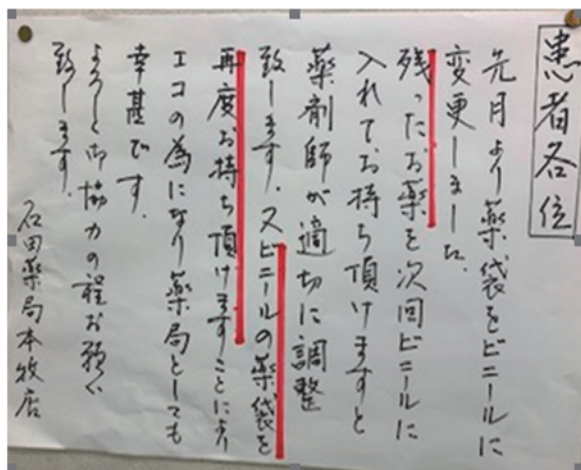 患者各位
先月より薬袋をビニールに
変更しました。
残ったお薬を次回ビニールに
入れてお持ち頂けますと
薬剤師が適切に調整
致します。又ビニールの薬袋を
再度お持ち頂けますことにより
エコの為になり薬局としても
幸甚です。
よろしく御協力の程お願い
致します。
石田薬局本牧店